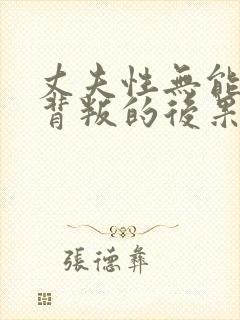 丈夫性無能
背叛的後果
張德彝